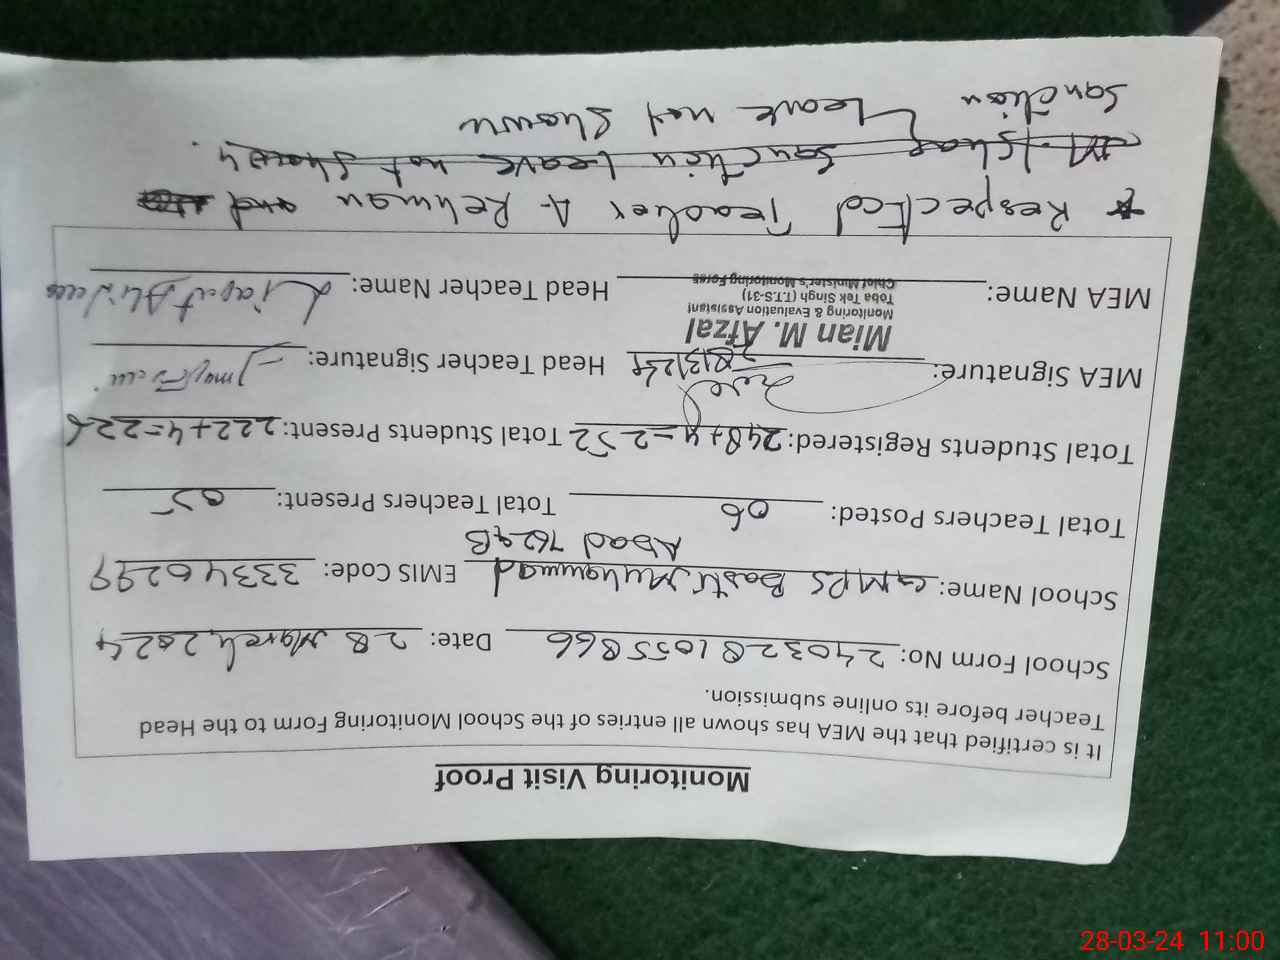 Monitoring Visit Proof
It is certified that the MEA has shown all entries of the School Monitoring Form to the Head
Teacher before its online submission.
School Form No: 2403281055866 Date: 28 March, 2024
School Name: GMPS Basti Muhammad EMIS Code: 33346299
Abad 762 GB
Total Teachers Posted: 06 Total Teachers Present: 05
Total Students Registered: 248+4=252 Total Students Present: 222+4=226
MEA Signature: 28/3/24 Head Teacher Signature:
Mian M. Afzal
Monitoring & Evaluation Assistant
Toba Tek Singh (T.T.S-31)
Chief Minister's Monitoring Force
MEA Name: Head Teacher Name: Liaqat Ali
* Respected Teacher A. Rehman and
M. Ishaq Sanction Leave not Shown.
Sanction Leave not Shown
28-03-24 11:00